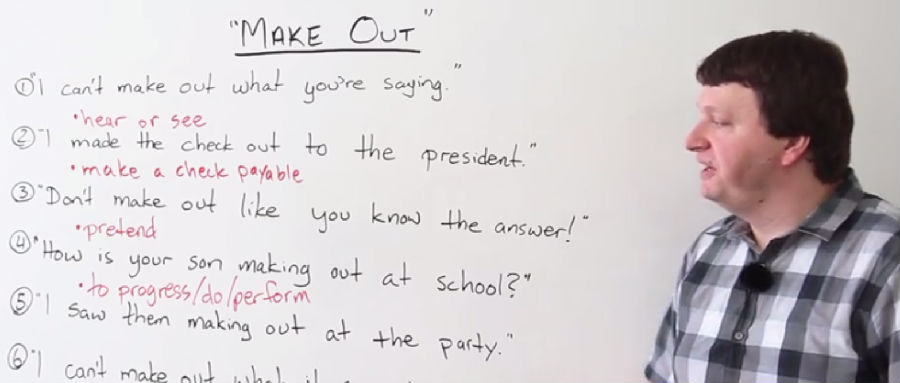 "MAKE OUT"
① "I can't make out what you're saying."
• hear or see
② "I made the check out to the president."
• make a check payable
③ "Don't make out like you know the answer!"
• pretend
④ "How is your son making out at school?"
• to progress/do/perform
⑤ "I saw them making out at the party."
⑥ "I can't make out what